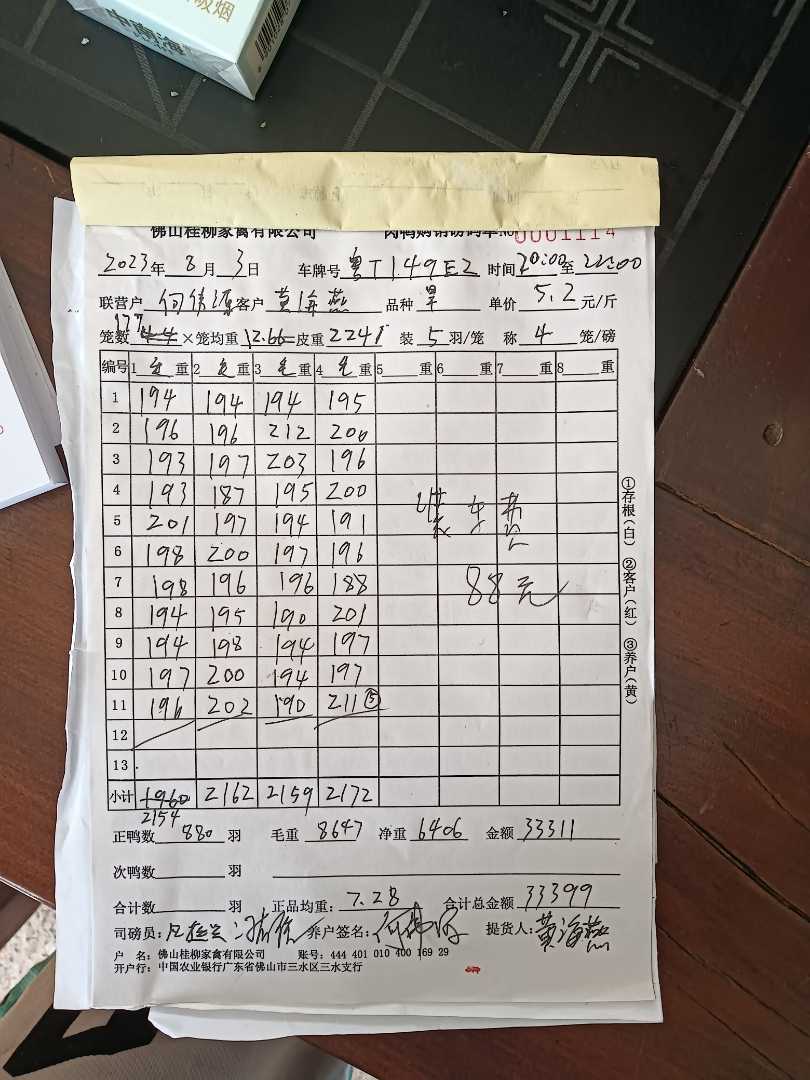 吸烟
中南海
佛山桂柳家禽有限公司 肉鸭购销磅码单 No 0001114
2023年8月3日 车牌号 粤T149E2 时间 20:00 至 22:00
联营户 何伟源 客户 黄海燕 品种 旱 单价 5.2 元/斤
笼数 177 × 笼均重 12.66 = 皮重 2241 装 5 羽/笼 称 4 笼/磅
编号 1 毛 重 2 毛 重 3 毛 重 4 毛 重 5 重 6 重 7 重 8 重
1 194 194 194 195
2 196 196 212 200
3 193 197 203 196
4 193 187 195 200
5 201 197 194 191
6 198 200 197 196
7 198 196 196 188
8 194 195 190 201
9 194 198 194 197
10 197 200 194 197
11 196 202 190 211 ⑤
12
13
装车费
88元
小计 1960 2162 2159 2172
2154
正鸭数 880 羽 毛重 8647 净重 6406 金额 33311
次鸭数 羽
合计数 羽 正品均重: 7.28 合计总金额 33399
司磅员: 养户签名: 何伟源 提货人: 黄海燕
户 名: 佛山桂柳家禽有限公司 账号: 444 401 010 400 169 29
开户行: 中国农业银行广东省佛山市三水区三水支行
①存根(白) ②客户(红) ③养户(黄)